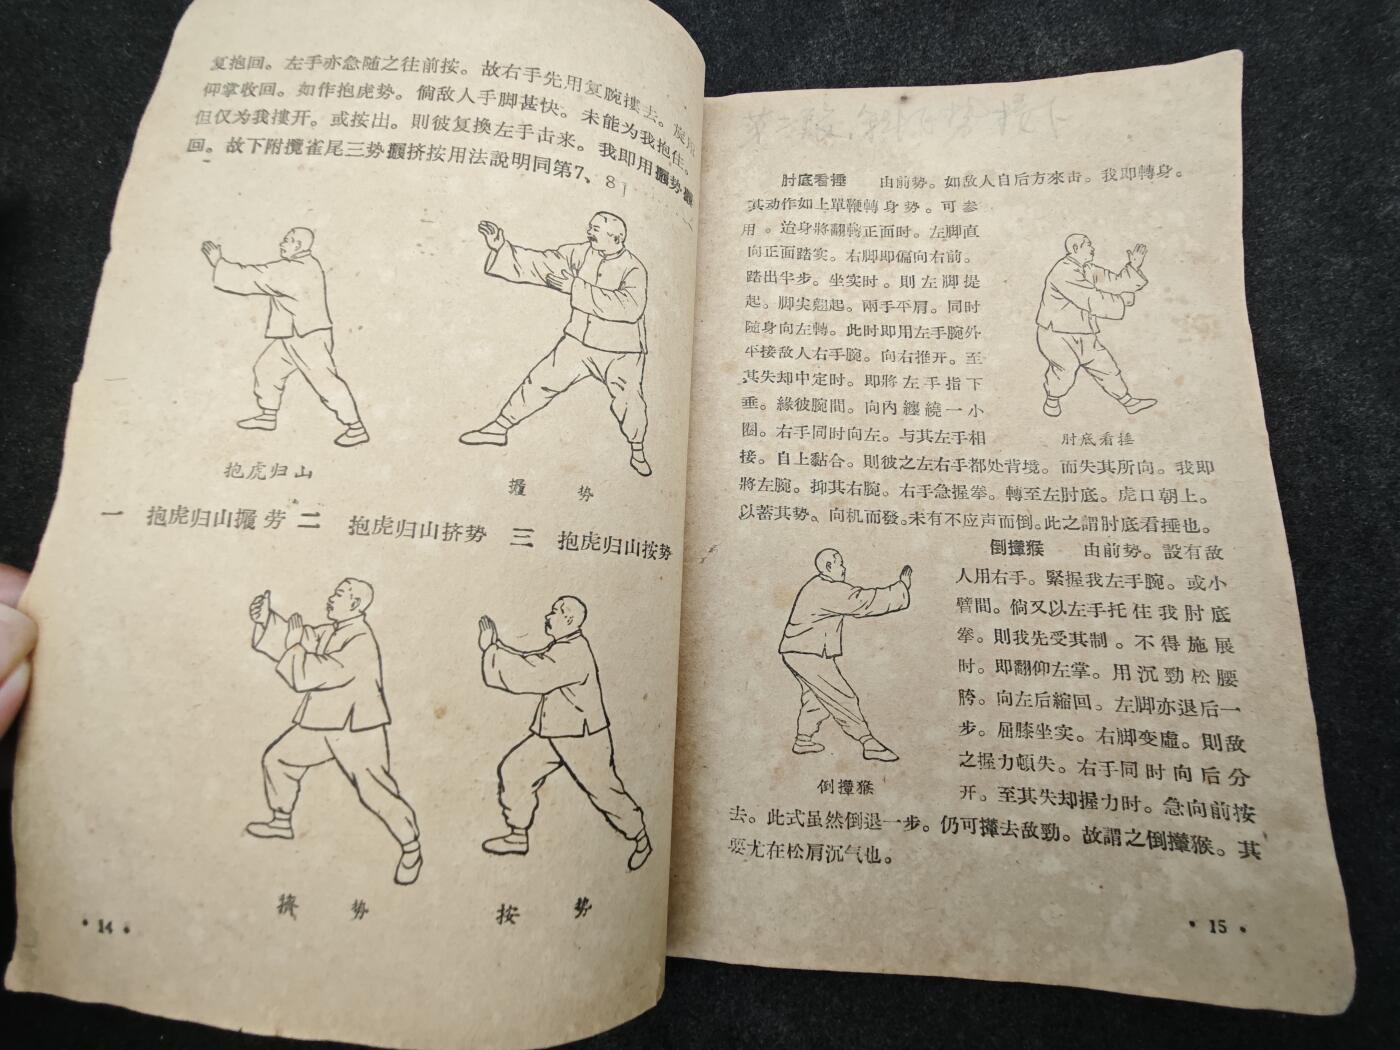 复抱回。左手亦急随之往前按。故右手先用复腕搂去。旋用
仰掌收回。如作抱虎势。倘敌人手脚甚快。未能为我抱住。
但仅为我搂开。或按出。則彼复換左手击来。我即用攦势攦
回。故下附攬雀尾三势攦挤按用法説明同第7、8
抱虎归山
攦 势
一 抱虎归山攦劳 二 抱虎归山挤势 三 抱虎归山按势
擠 势
按 势
• 14 •
第二 势 接下
肘底看捶 由前势。如敌人自后方來击。我即轉身。
其动作如上單鞭轉身势。可参
用。迨身將翻轉正面时。左脚直
向正面踏实。右脚即偏向右前。
踏出半步。坐实时。則左脚提
起。脚尖翹起。兩手平肩。同时
随身向左轉。此时即用左手腕外
平接敌人右手腕。向右推开。至
其失却中定时。即將左手指下
垂。緣彼腕間。向內纏繞一小
圈。右手同时向左。与其左手相
接。自上黏合。則彼之左右手都处背境。而失其所向。我即
將左腕。抑其右腕。右手急握拳。轉至左肘底。虎口朝上。
以蓄其势、向机而發。未有不应声而倒。此之謂肘底看捶也。
肘底看捶
倒攆猴 由前势。設有敌
人用右手。緊握我左手腕。或小
臂間。倘又以左手托住我肘底
拳。則我先受其制。不得施展
时。即翻仰左掌。用沉勁松腰
胯。向左后縮回。左脚亦退后一
步。屈膝坐实。右脚变虛。則敌
之握力頓失。右手同时向后分
开。至其失却握力时。急向前按
去。此式虽然倒退一步。仍可攆去敌勁。故謂之倒攆猴。其
要尤在松肩沉气也。
倒攆猴
• 15 •